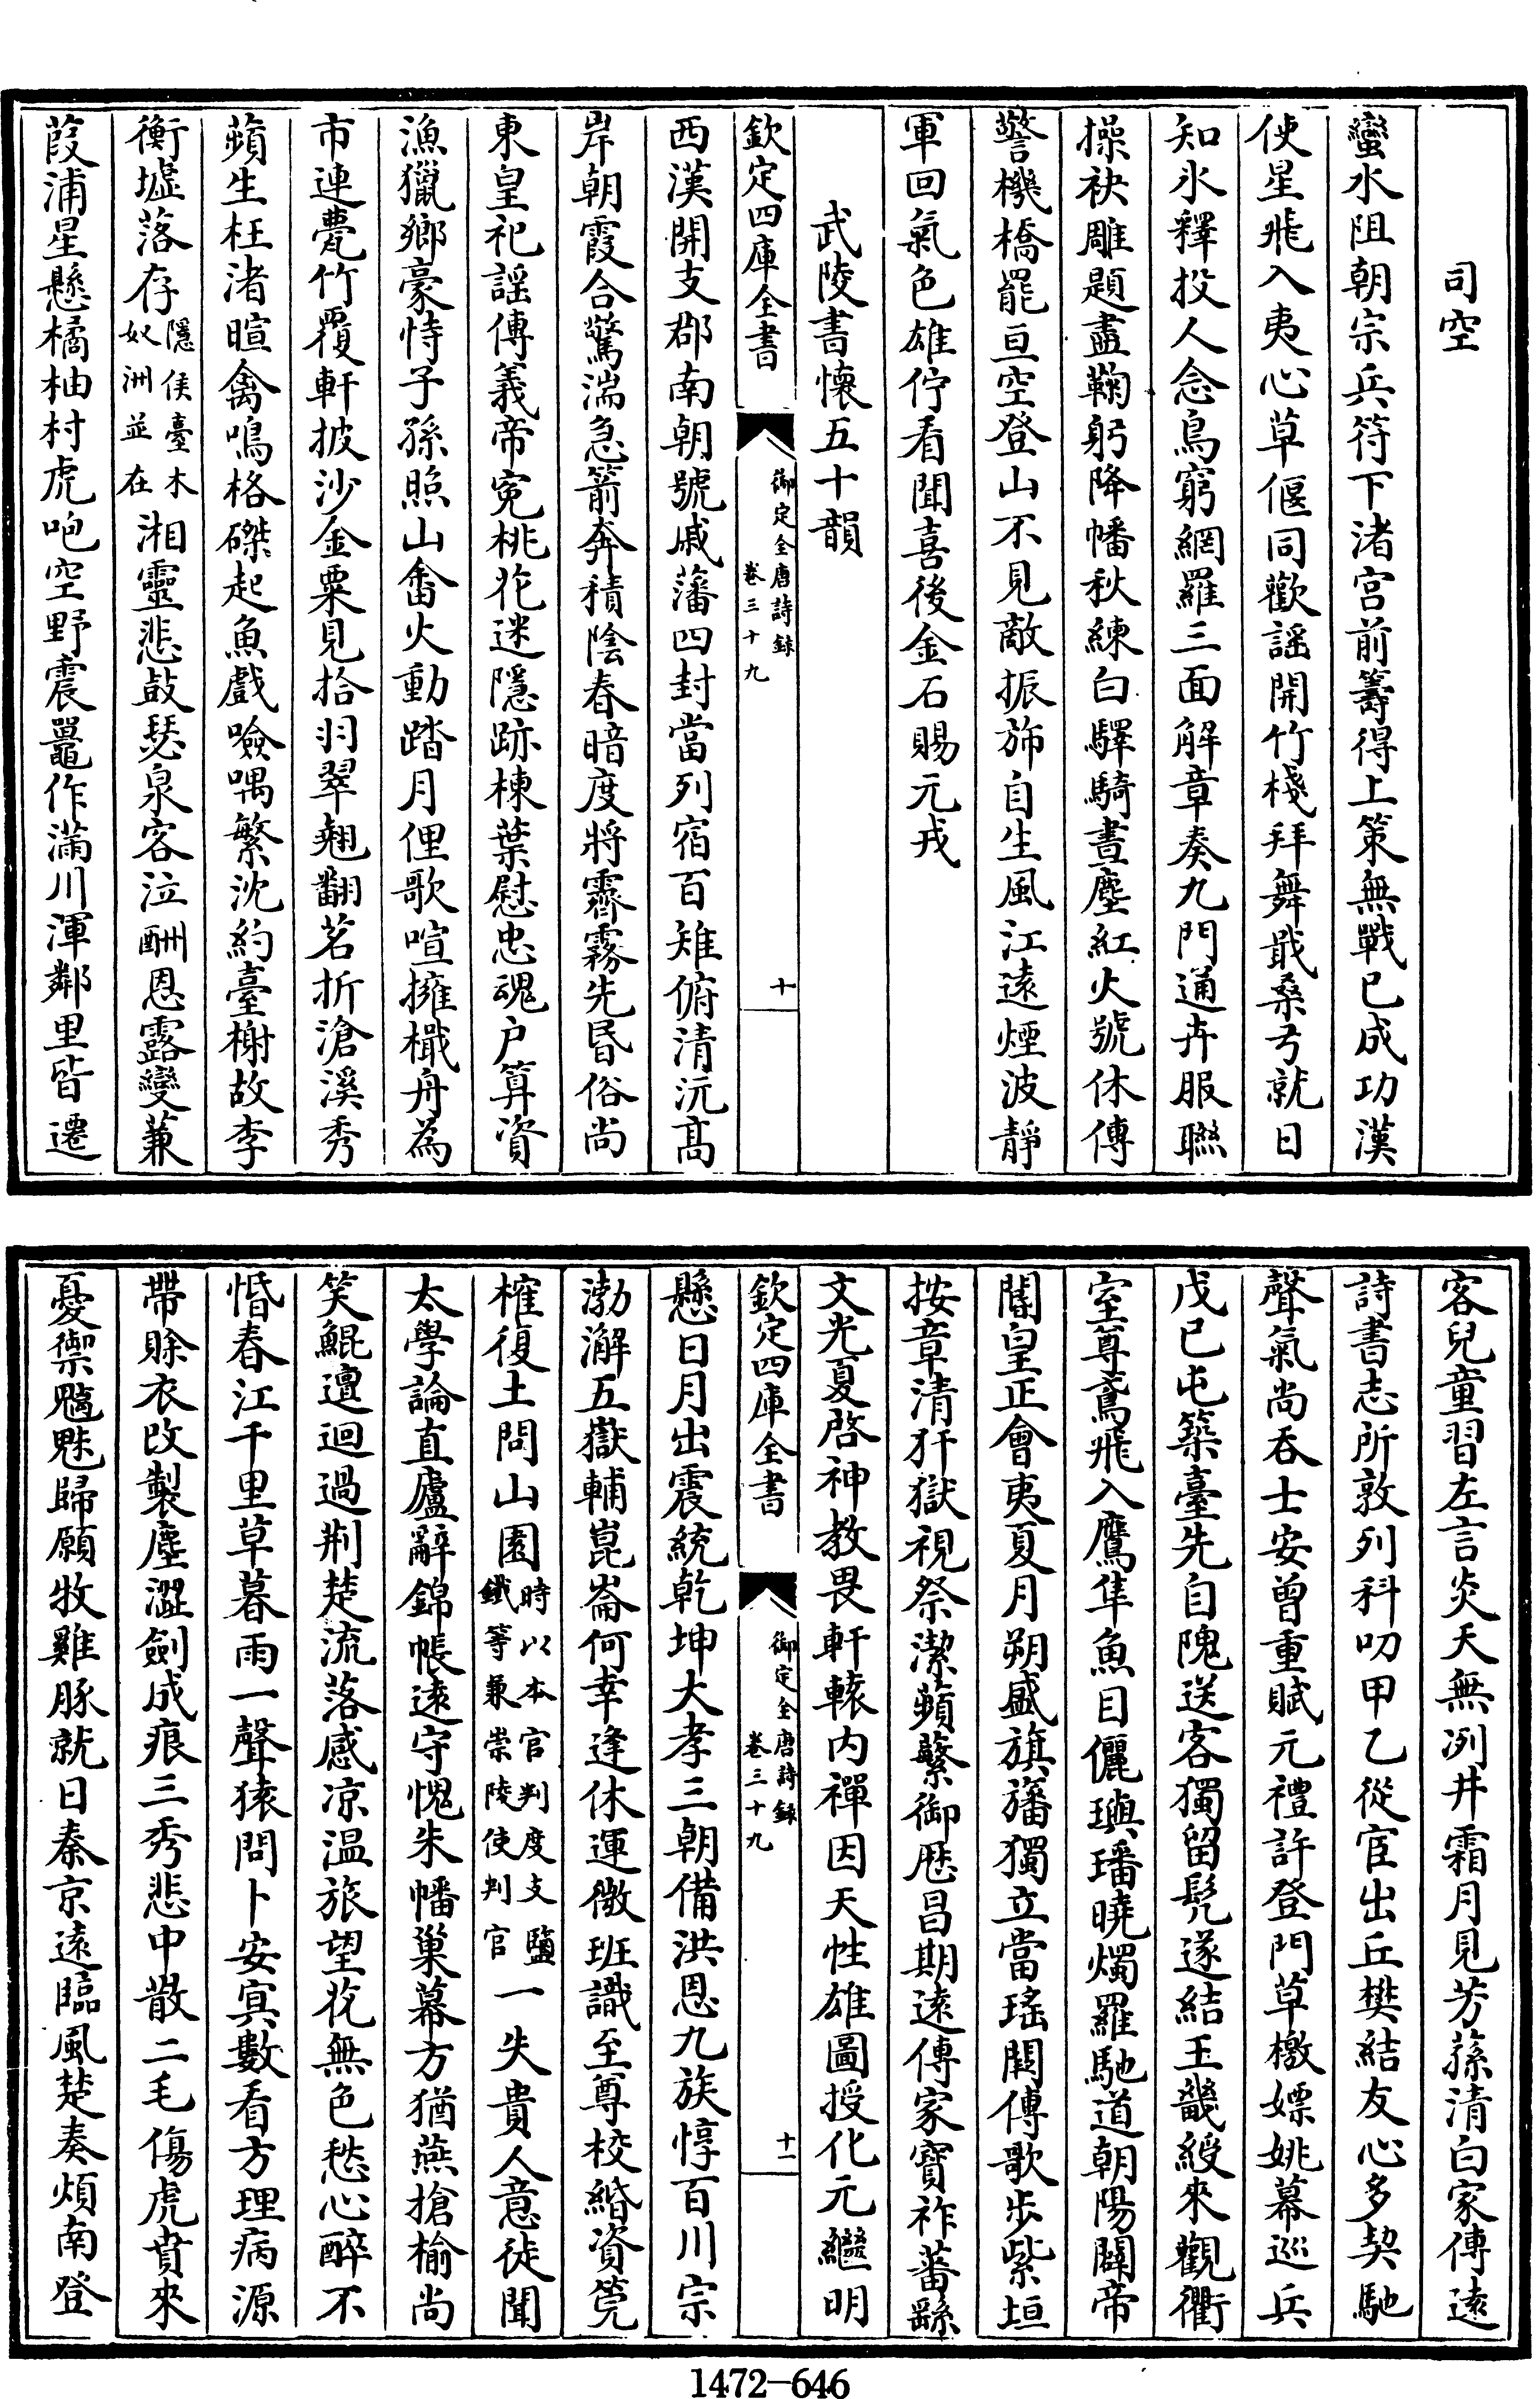 司空
蠻水阻朝宗兵符下渚宫前籌得上策無戰已成功漢
使星飛入夷心草偃同歡謡開竹棧拜舞戢桑弓就日
知氷釋投人念鳥窮網羅三面解章奏九門通卉服聯
操袂雕題盡鞠躬降幡秋練白驛騎晝塵紅火號休傳
警機橋罷亘空登山不見敵振斾自生風江遠煙波靜
軍回氣色雄佇看聞喜後金石賜元戎
武陵書懷五十韻
欽定四庫全書
御定全唐詩録
卷三十九
十
西漢開支郡南朝號戚藩四封當列宿百雉俯清沅髙
岸朝霞合驚湍急箭奔積陰春暗度將霽霧先昏俗尚
東皇祀謡傳義帝寃桃花迷隱跡楝葉慰忠魂户算資
漁獵鄉豪恃子孫照山畬火動踏月俚歌喧擁檝舟為
市連甍竹覆軒披沙金粟見拾羽翠翹翻茗折滄溪秀
蘋生枉渚暄禽鳴格磔起魚戲噞喁繁沈約臺榭故李
衡墟落存隱侯臺木奴洲並在湘靈悲鼔瑟泉客泣酬恩露變蒹
葭浦星懸橘柚村虎咆空野震鼉作滿川渾鄰里皆遷
客兒童習左言炎天無冽井霜月見芳蓀清白家傳遠
詩書志所敦列科叨甲乙從宦出丘樊結友心多契馳
聲氣尚吞士安曾重賦元禮許登門草檄嫖姚幕巡兵
戊已屯築臺先自隗送客獨留髠遂結王畿綬來觀衢
室尊鳶飛入鷹隼魚目儷璵璠曉燭羅馳道朝陽闢帝
閽皇正會夷夏月朔盛旗旛獨立當瑤闕傳歌步紫垣
按章清犴獄視祭潔蘋蘩御厯昌期遠傳家寳祚蕃繇
文光夏啓神教畏軒轅内禪因天性雄圖授化元繼明
欽定四庫全書
御定全唐詩録
卷三十九
十一
懸日月出震統乾坤大孝三朝備洪恩九族惇百川宗
渤澥五嶽輔崑崙何幸逢休運微班識至尊校緡資筦
榷復土問山園時以本官判度支鹽鐵等兼崇陵使判官一失貴人意徒聞
太學論直廬辭錦帳逺守愧朱幡巢幕方猶燕搶榆尚
笑鯤邅迴過荆楚流落感凉温旅望花無色愁心醉不
惛春江千里草暮雨一聲猿問卜安㝠數看方理病源
帶賖衣改製塵澀劍成痕三秀悲中散二毛傷虎賁來
憂禦魑魅歸願牧雞豚就日秦京遠臨風楚奏煩南登
1472-646